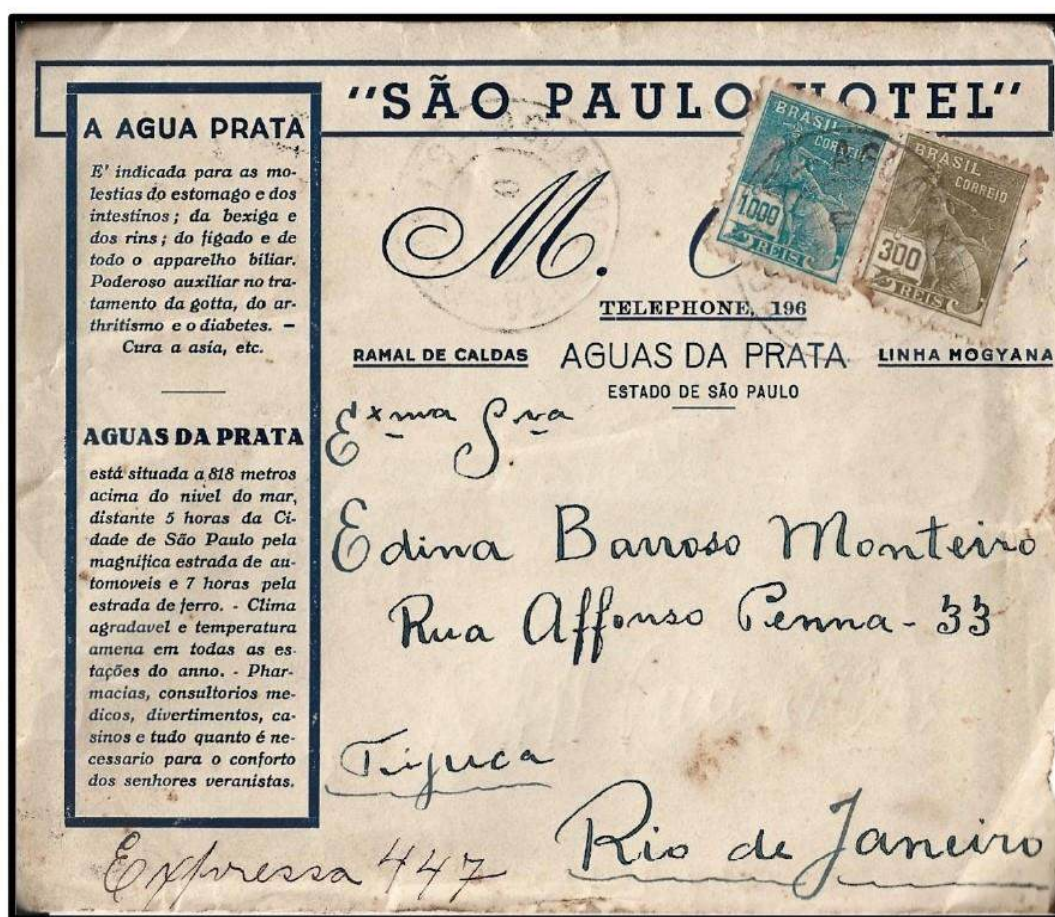 "SÃO PAULO HOTEL"
A AGUA PRATA
E' indicada para as mo-
lestias do estomago e dos
intestinos; da bexiga e
dos rins; do figado e de
todo o apparelho biliar.
Poderoso auxiliar no tra-
tamento da gotta, do ar-
thritismo e o diabetes. –
Cura a asia, etc.
AGUAS DA PRATA
está situada a 818 metros
acima do nivel do mar,
distante 5 horas da Ci-
dade de São Paulo pela
magnifica estrada de au-
tomoveis e 7 horas pela
estrada de ferro. - Clima
agradavel e temperatura
amena em todas as es-
tações do anno. - Phar-
macias, consultorios me-
dicos, divertimentos, ca-
sinos e tudo quanto é ne-
cessario para o conforto
dos senhores veranistas.
M. C
BRASIL
CORREIO
1000
REIS
BRASIL
CORREIO
300
REIS
TELEPHONE, 196
RAMAL DE CALDAS AGUAS DA PRATA LINHA MOGYANA
ESTADO DE SÃO PAULO
Exma Sra
Edina Barroso Monteiro
Rua Affonso Penna - 33
Tijuca
Rio de Janeiro
Expressa 447